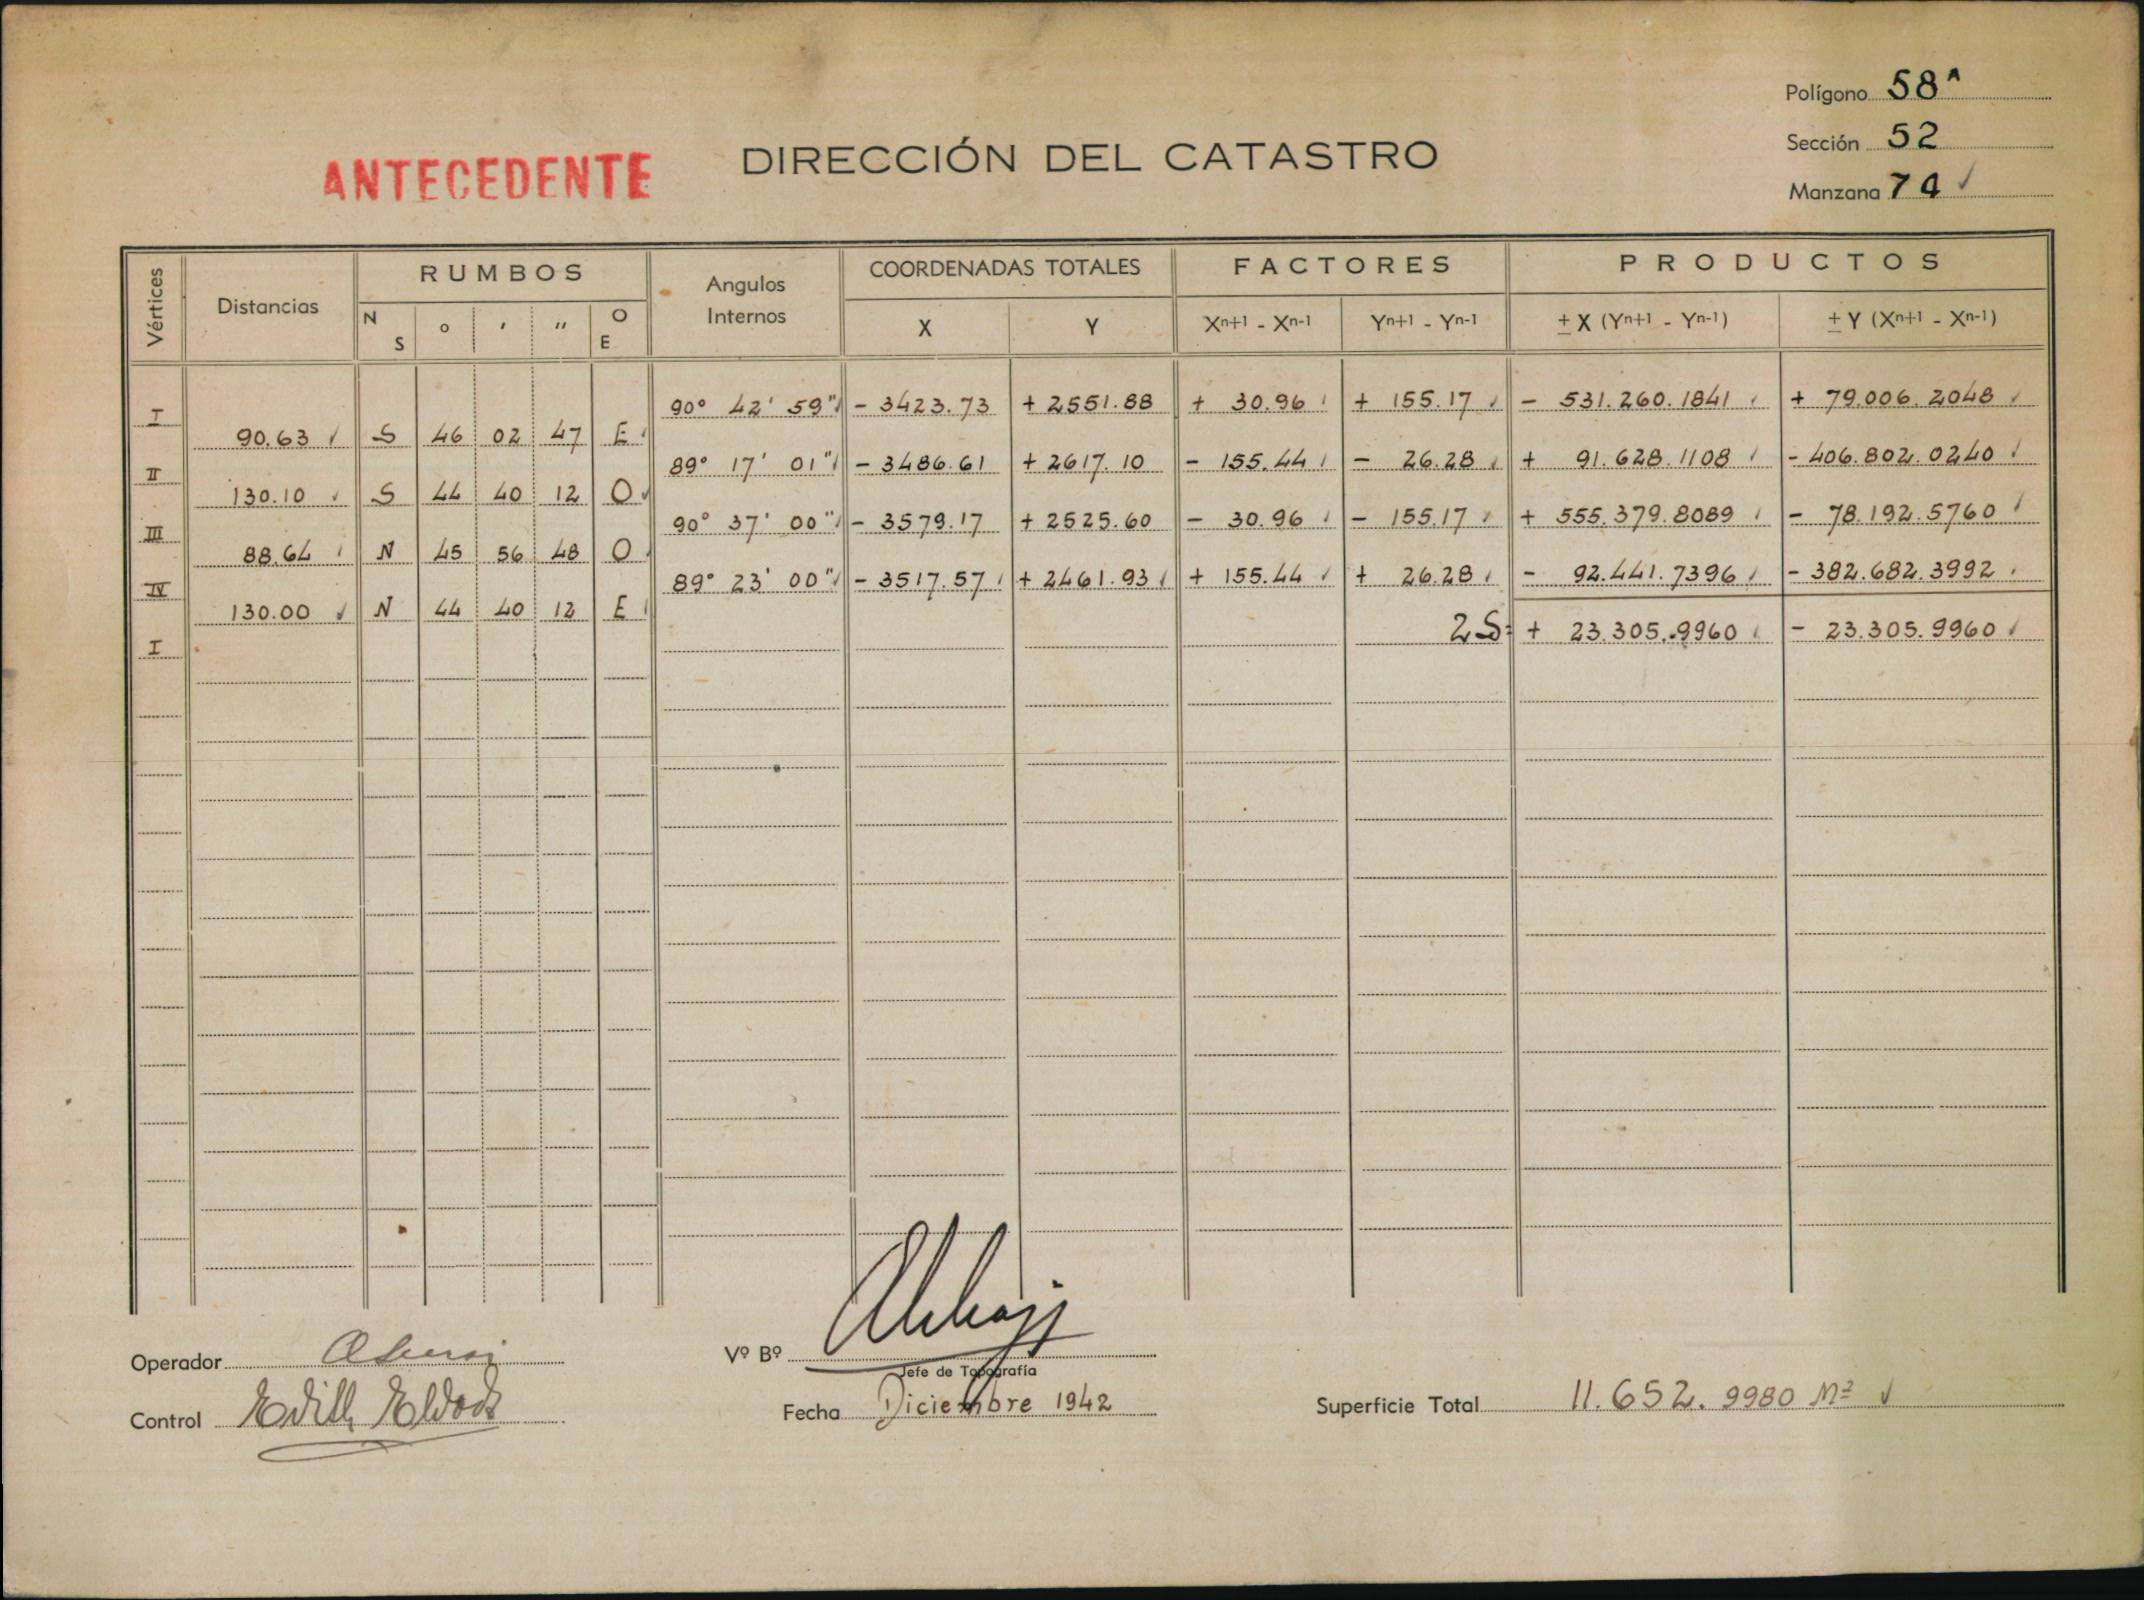 Polígono 58ᴬ
Sección 52
Manzana 74 ✓
ANTECEDENTE
DIRECCIÓN DEL CATASTRO
Vértices Distancias RUMBOS Angulos Internos COORDENADAS TOTALES FACTORES PRODUCTOS
N S o ' '' O E X Y Xn+1 - Xn-1 Yn+1 - Yn-1 ± X (Yn+1 - Yn-1) ± Y (Xn+1 - Xn-1)
I 90° 42' 59" - 3423.73 + 2551.88 + 30.96 + 155.17 - 531.260.1841 + 79.006.2048
90.63 S 46 02 47 E
II 89° 17' 01" - 3486.61 + 2617.10 - 155.44 - 26.28 + 91.628.1108 - 406.802.0240
130.10 S 44 40 12 O
III 90° 37' 00" - 3579.17 + 2525.60 - 30.96 - 155.17 + 555.379.8089 - 78.192.5760
88.64 N 45 56 48 O
IV 89° 23' 00" - 3517.57 + 2461.93 + 155.44 + 26.28 - 92.441.7396 - 382.682.3992
130.00 N 44 40 12 E
I 2S= + 23.305.9960 - 23.305.9960
Operador
Vº Bº
Jefe de Topografía
Control Edith
Fecha Diciembre 1942
Superficie Total 11.652.9980 M² ✓